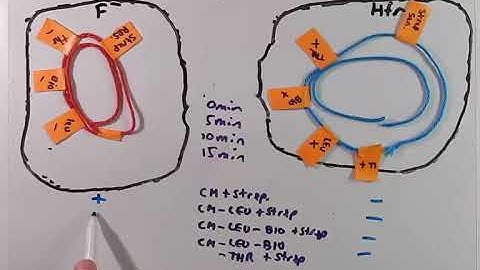 F⁻
Hfr
thr -
Strep RES
bio -
leu -
Strep Sen
THR +
BIO +
LEU +
F+
0min
5min
10min
15min
+
CM + Strep. -
CM - LEU + Strep -
CM - LEU - BIO + Strep -
CM - LEU - BIO -
- THR + Strep